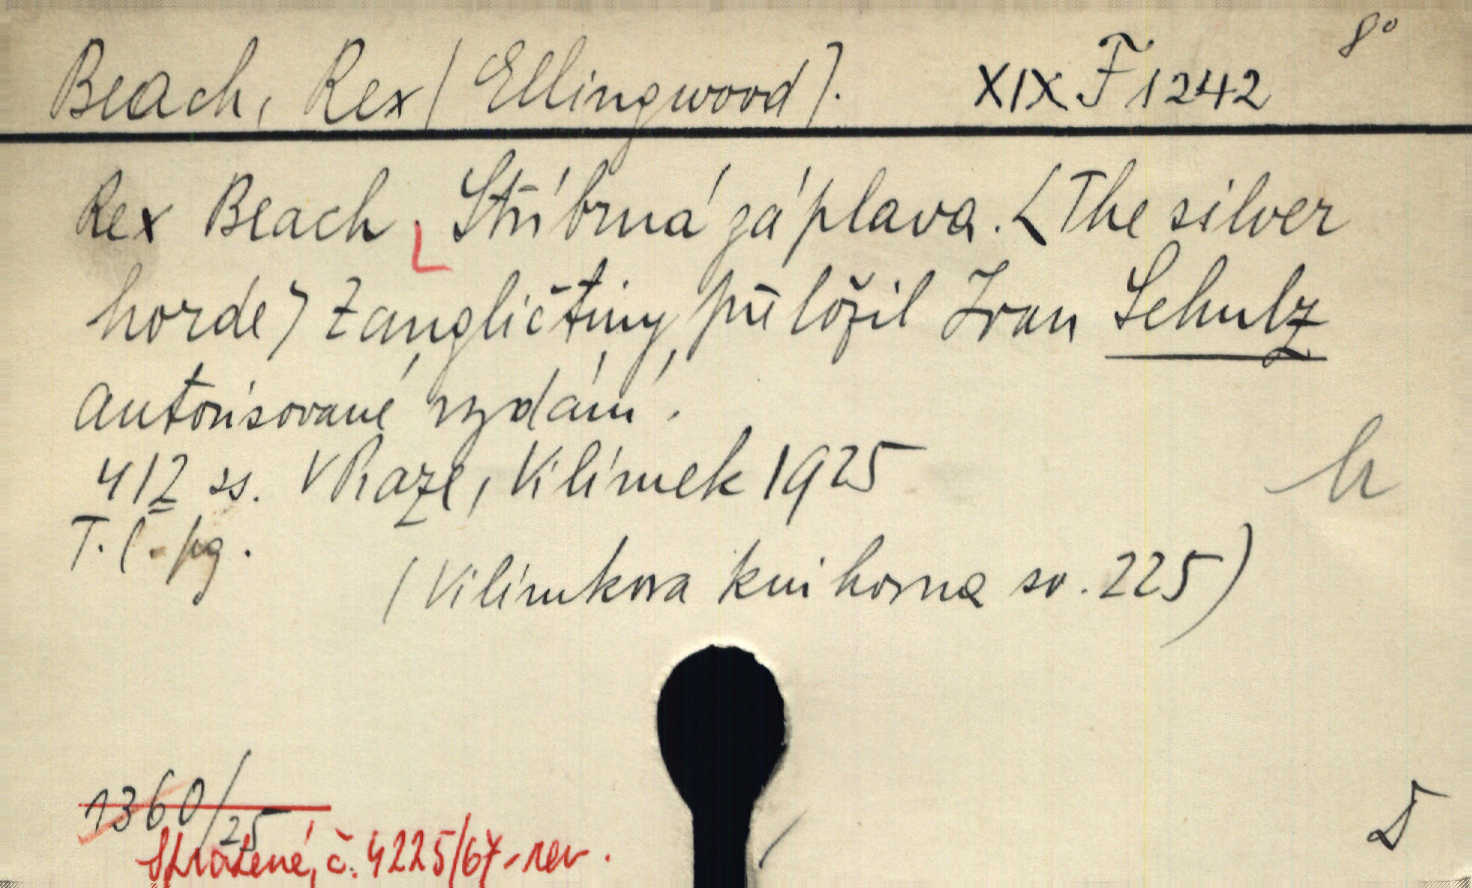 Beach, Rex (Ellingwood). XIX F 1242 8°
Rex Beach Stříbrná záplava. <The silver
horde> Z angličtiny přeložil Ivan Schulz
autorisované vydání.
412 ss. V Praze, Vilímek 1925
h
T. l. pg.
(Vilímkova knihovna sv. 225)
1360/25
Ztracené, č. 4225/67-rev.
D